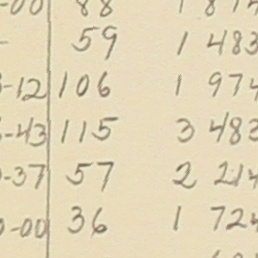 -00 88 1 817
- 59 1 483
-12 106 1 974
-43 115 3 483
-37 57 2 214
-00 36 1 724